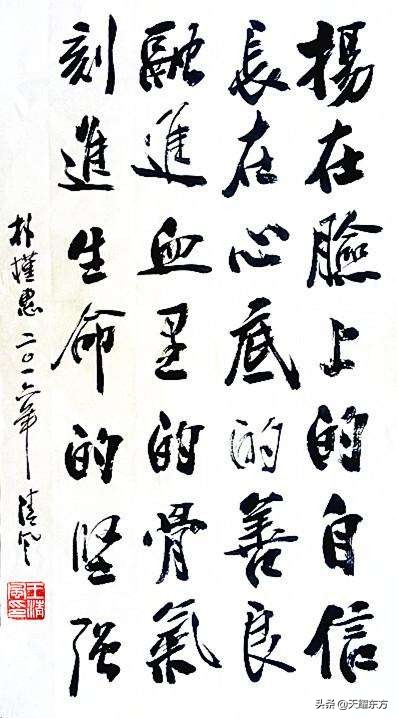 揚在臉上的自信
長在心底的善良
融進血里的骨氣
刻進生命的坚强
朴槿惠二〇一六年 清风
王清風印
头条 @天耀东方